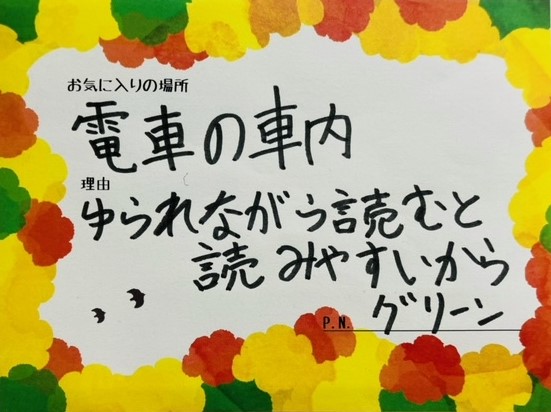 お気に入りの場所
電車の車内
理由
ゆられながら読むと
読みやすいから
P.N. グリーン